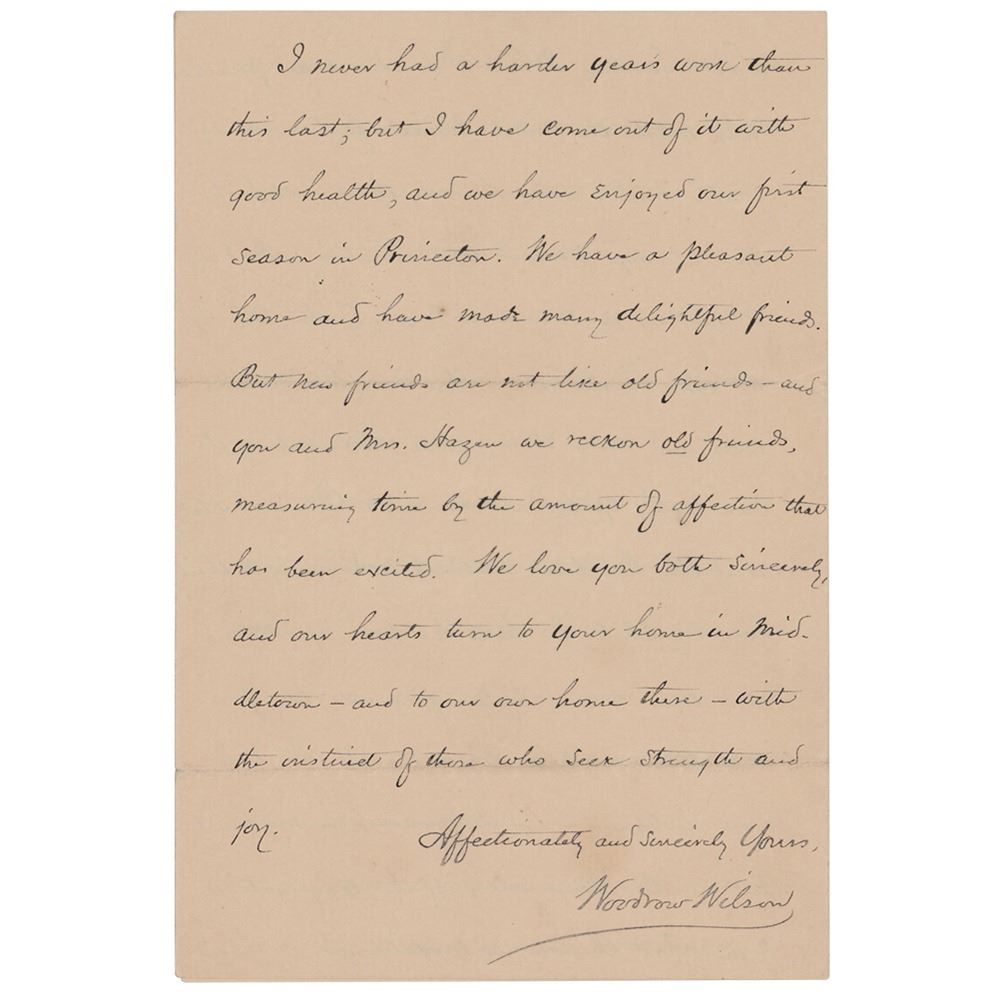 I never had a harder year's work than
this last; but I have come out of it with
good health, and we have enjoyed our first
season in Princeton. We have a pleasant
home and have made many delightful friends.
But new friends are not like old friends – and
you and Mrs. Hazen we reckon old friends,
measuring time by the amount of affection that
has been excited. We love you both sincerely,
and our hearts turn to your home in Mid-
dletown – and to our own home there – with
the instinct of those who seek strength and
joy.
Affectionately and sincerely Yours,
Woodrow Wilson